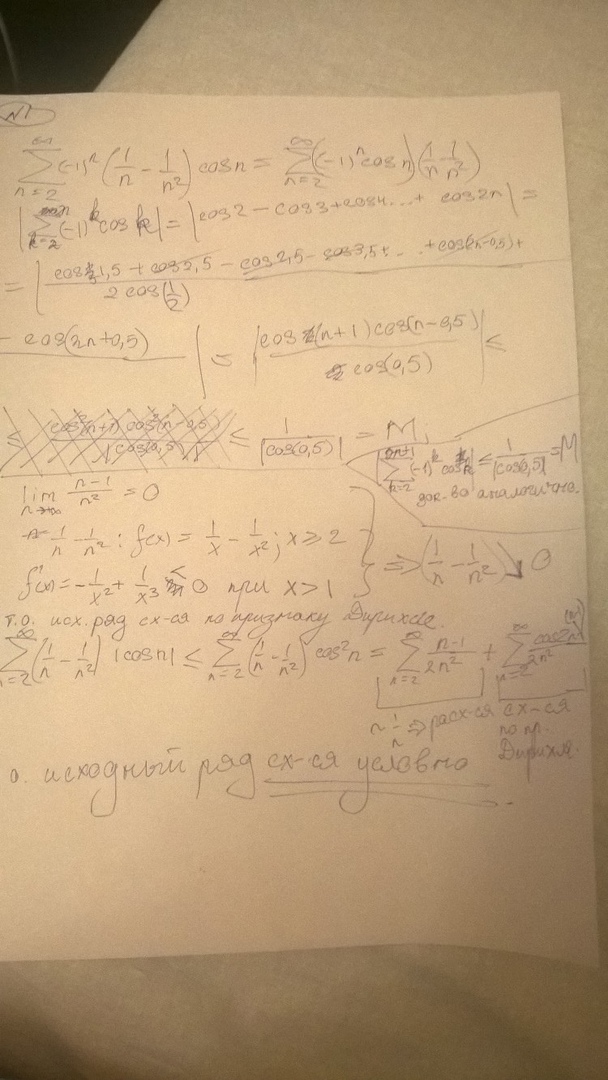 №1
∞∑n=2 (-1)ⁿ (1/n - 1/n²) cos n = ∞∑n=2 ((-1)ⁿ cos n)(1/n - 1/n²)
|∑k=2 (-1)ᵏ cos k| = |cos2 - cos3 + cos4 ... + cos2n| =
= |cos1,5 + cos2,5 - cos2,5 - cos3,5 + ... + cos(2n-0,5) +
2cos(1/2)
- cos(2n+0,5)| = |cos(n+1)cos(n-0,5)/cos(0,5)| ≤
≤ 1/|cos(0,5)| = M,
|2n+1∑k=2 (-1)ᵏ cos k| ≤ 1/|cos0,5| = M
док-во аналогично.
lim n→∞ (n-1)/n² = 0
1/n - 1/n²: f(x) = 1/x - 1/x²; x ≥ 2
f'(x) = -1/x² + 1/x³ < 0 при x > 1
} => (1/n - 1/n²) ↘ 0
т.о. исх. ряд сх-ся по признаку Дирихле.
∞∑n=2 (1/n - 1/n²) |cos n| ≤ ∞∑n=2 (1/n - 1/n²) cos²n = ∞∑n=2 (n-1)/2n² + ∞∑n=2 cos2n/2n²
~ 1/n => расх-ся
сх-ся
по пр.
Дирихле.
о. исходный ряд сх-ся условно.